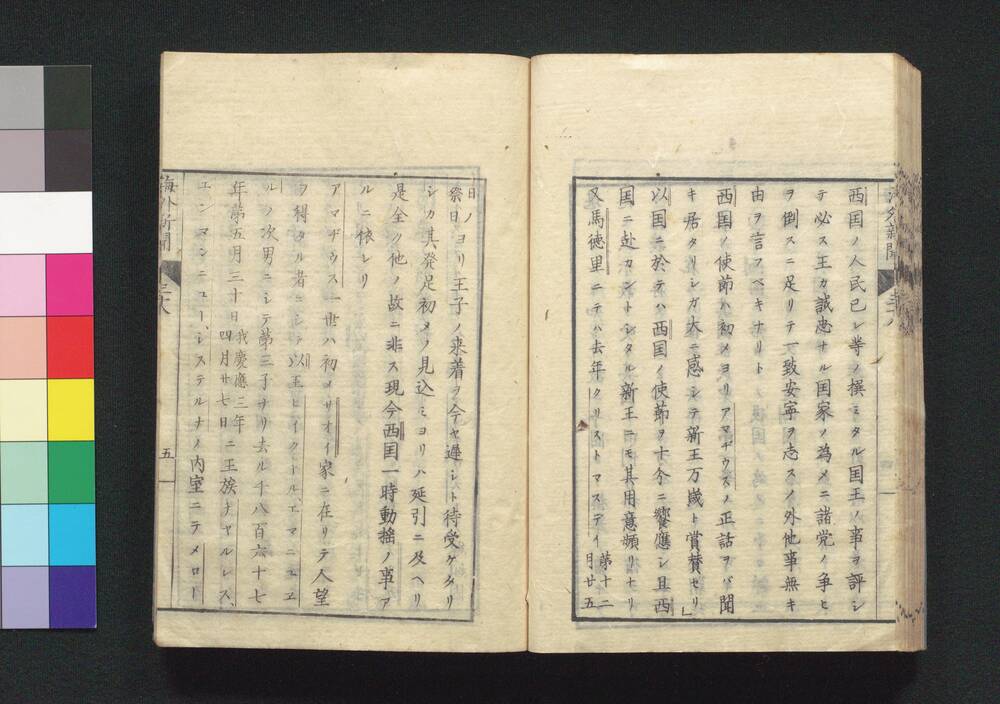 西国ノ人民已レ等ノ撰ミタル国王ノ事ヲ評シ
テ必ス王カ誠忠ナル国家ノ為メニ諸党ノ争ヒ
ヲ倒スニ足リテ一致安寧ヲ志スノ外他事無キ
由ヲ言フベキナリト
西国ノ使節ハ初メヨリアマヂウスノ正話ヲバ聞
キ居タリシガ大ニ感シテ新王万歳ト賞賛セリ」
以国ニ於テハ西国ノ使節ヲ十分ニ饗應シ且西
国ニ赴カントシタル新王ニモ其用意頻リナリ
又馬徳里ニテハ去年クリストマスデイ第十二月廿五
日ノ祭日ヨリ王子ノ来着ヲ今ヤ遅シト待受ケタリ
シカ其発足初メノ見込ミヨリハ延引ニ及ヘリ
是全ク他ノ故ニ非ス現今西国一時動揺ノ事ア
ルニ依レリ
アマヂウス一世ハ初メサオイ家ニ在リテ人望
ヲ得タル者ニシテ以王ヒイクトール、エマニユエ
ルノ次男ニシテ第三子ナリ去ル千八百六十七
年第五月三十日我慶應三年四月廿七日ニ王族ナヤルレス、
エンマンニユー、システルナノ内室ニテメロー
海外新聞
五